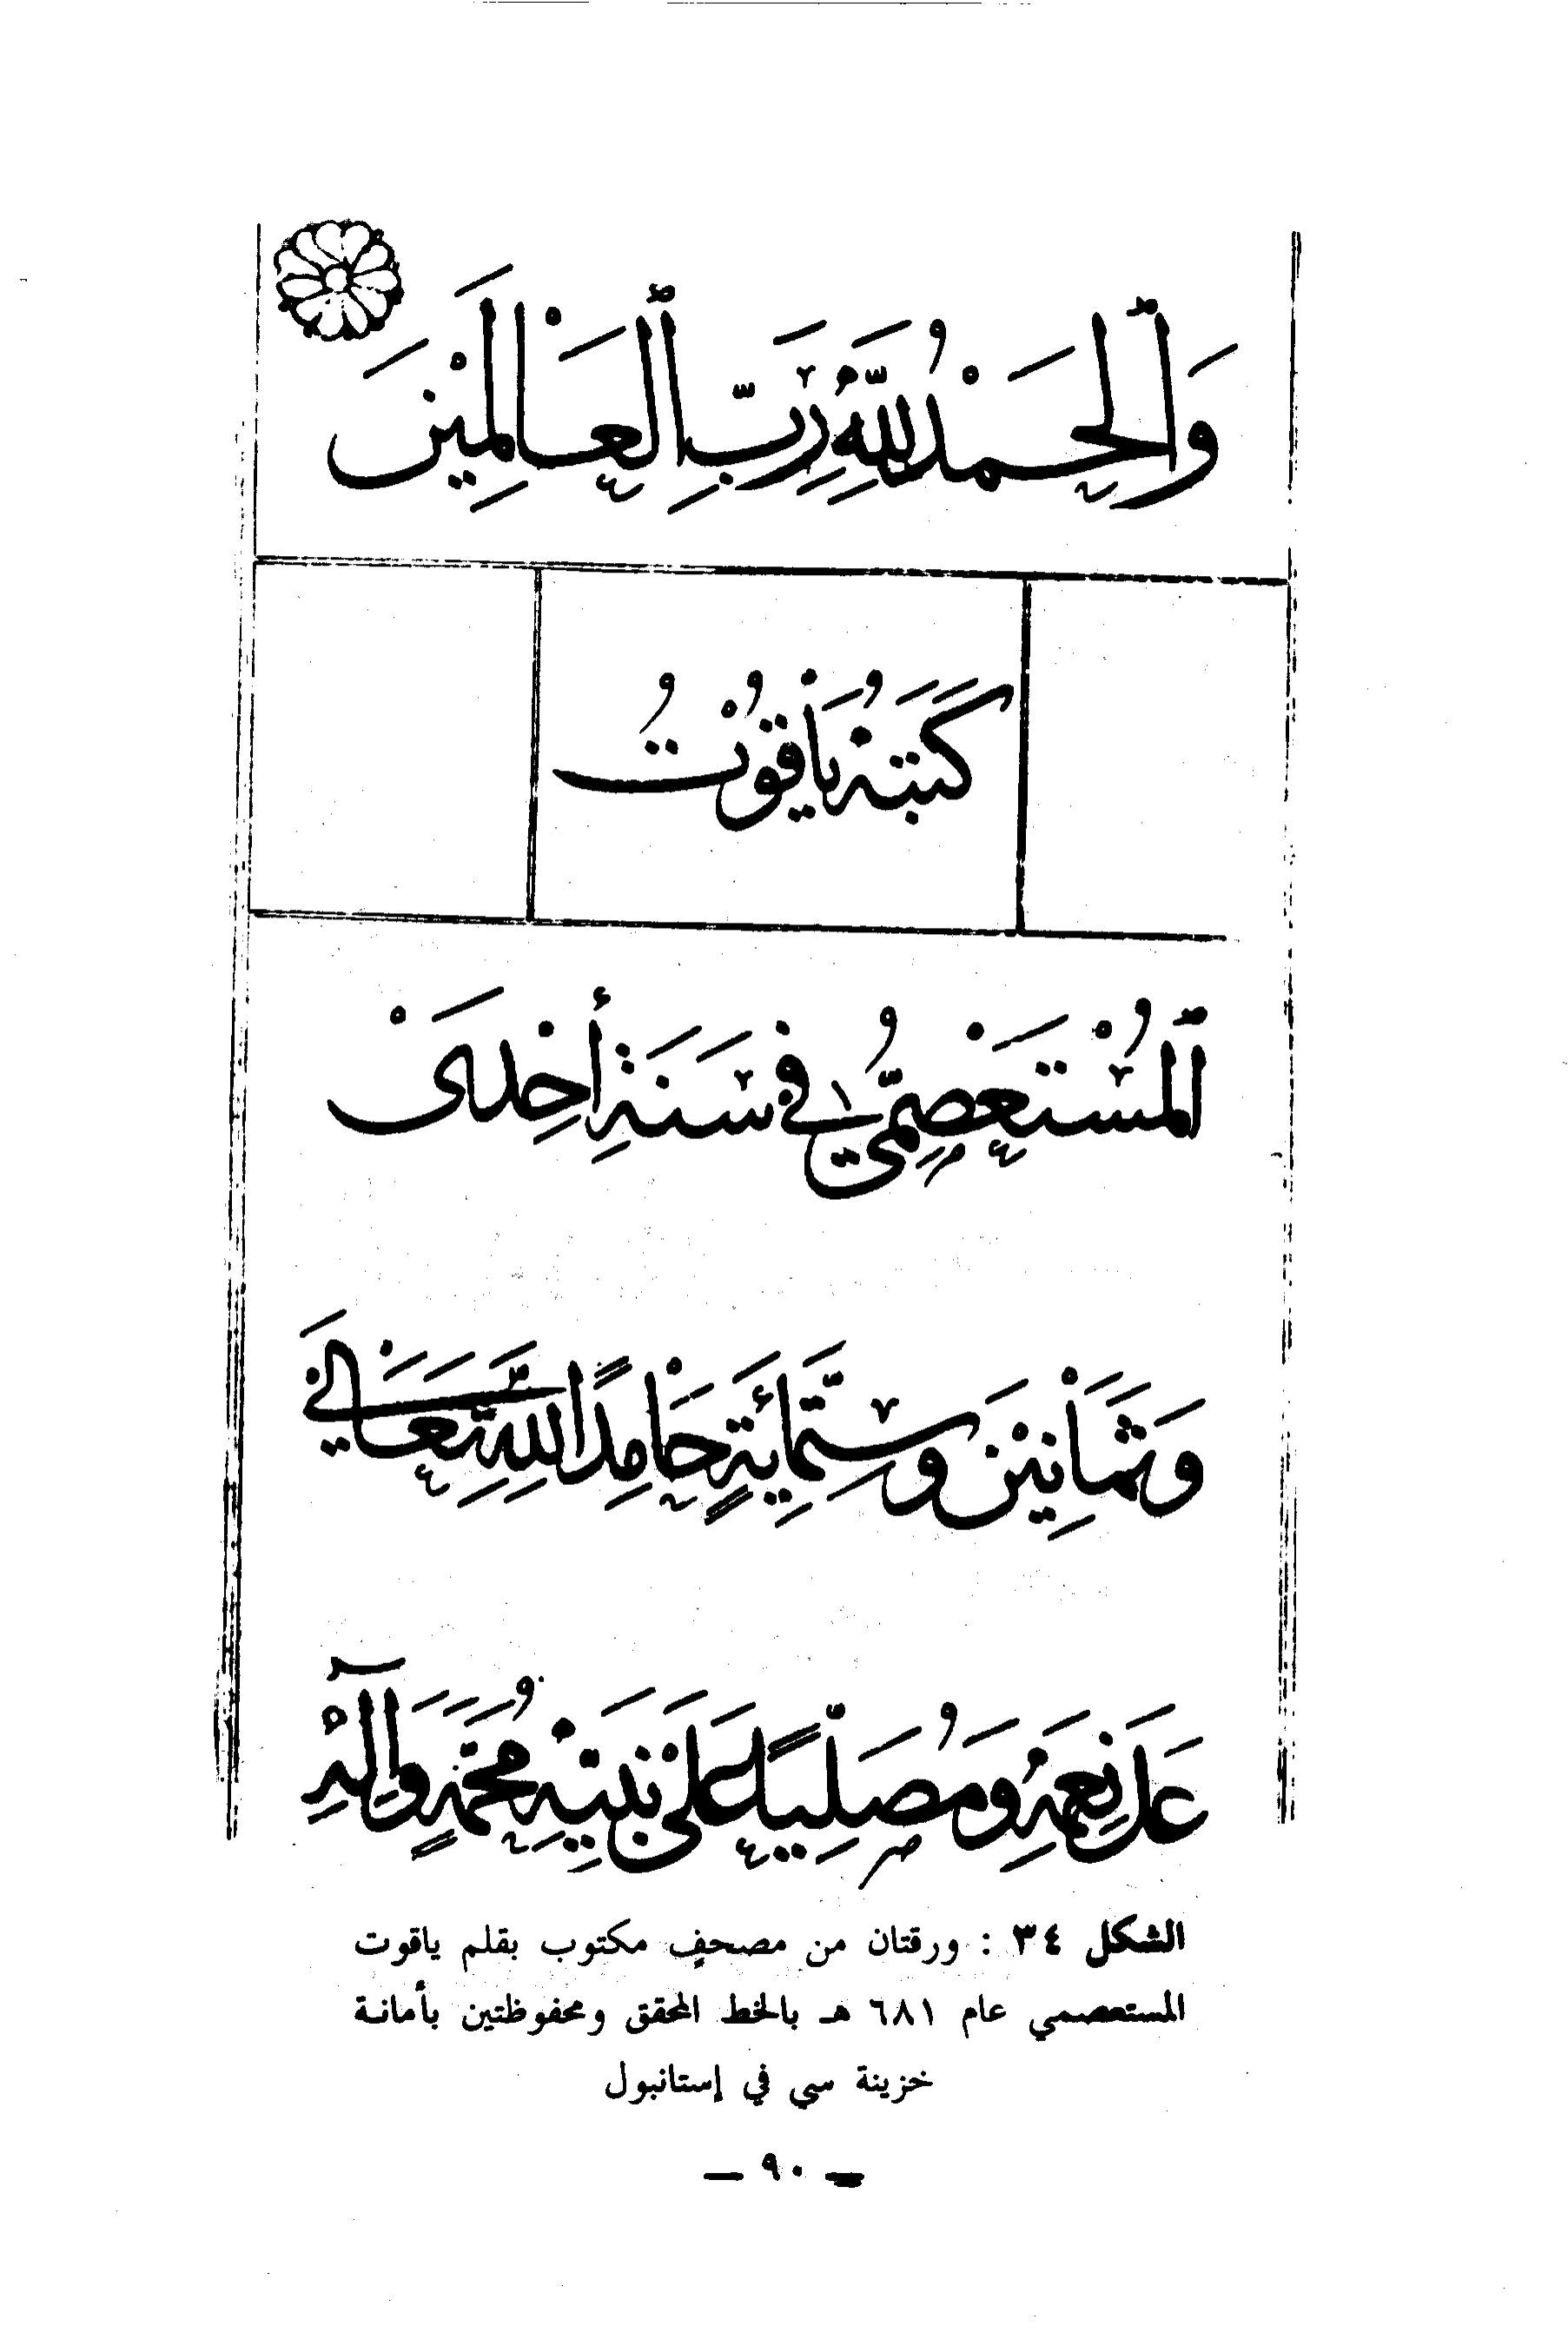 وَالْحَمْدُ لِلَّهِ رَبِّ الْعَالَمِينَ
كَتَبَهُ يَاقُوْتُ
الْمُسْتَعْصِمِيُّ فِي سَنَةِ أحِدَى
وَثَمَانِيْنَ وَسِتَّمِائَةٍ حَامِدًا لِلَّهِ تَعَالَى
عَلَى نِعَمِهِ وَمُصَلِّيًا عَلَى نَبِيِّهِ مُحَمَّدٍ وَآلِهِ
الشكل ٣٤ : ورقتان من مصحفٍ مكتوب بقلم ياقوت
المستعصمي عام ٦٨١ هـ بالخط المحقق ومحفوظتين بأمانة
خزينة سي في إستانبول
— ٩٠ —